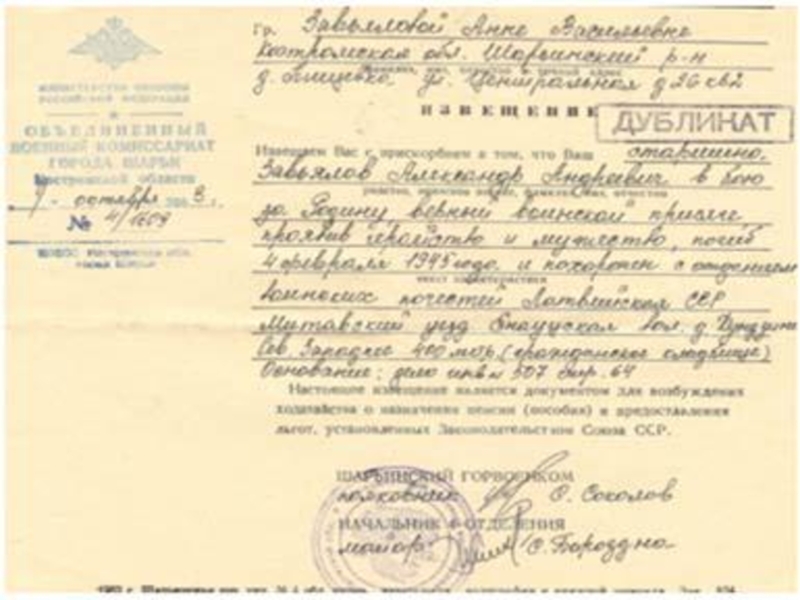 Гр. Завьяловой Анне Васильевне
Костромская обл. Шарьинский р-н
ул. Центральная д 26 кв 2
МИНИСТЕРСТВО ОБОРОНЫ
РОССИЙСКОЙ ФЕДЕРАЦИИ
ОБЪЕДИНЕННЫЙ
ВОЕННЫЙ КОМИССАРИАТ
ГОРОДА ШАРЬИ
Костромской области
октября
№ 4/1609
ИЗВЕЩЕНИЕ
ДУБЛИКАТ
Извещаем Вас с прискорбием о том, что Ваш старшина
Завьялов Александр Андреевич в бою
за Родину, верный воинской присяге,
проявив геройство и мужество, погиб
4 февраля 1945 года и похоронен с отданием
воинских почестей Латвийская ССР
Митавский уезд вол. д.
Сев. Западнее 400 метр. (гражданское кладбище)
Основание: дело инв № 507 стр. 64
Настоящее извещение является документом для возбуждения
ходатайства о назначении пенсии (пособия) и предоставления
льгот, установленных Законодательством Союза ССР.
ШАРЬИНСКИЙ ГОРВОЕНКОМ
полковник С. Соколов
НАЧАЛЬНИК 4 ОТДЕЛЕНИЯ
майор С. Бороздна